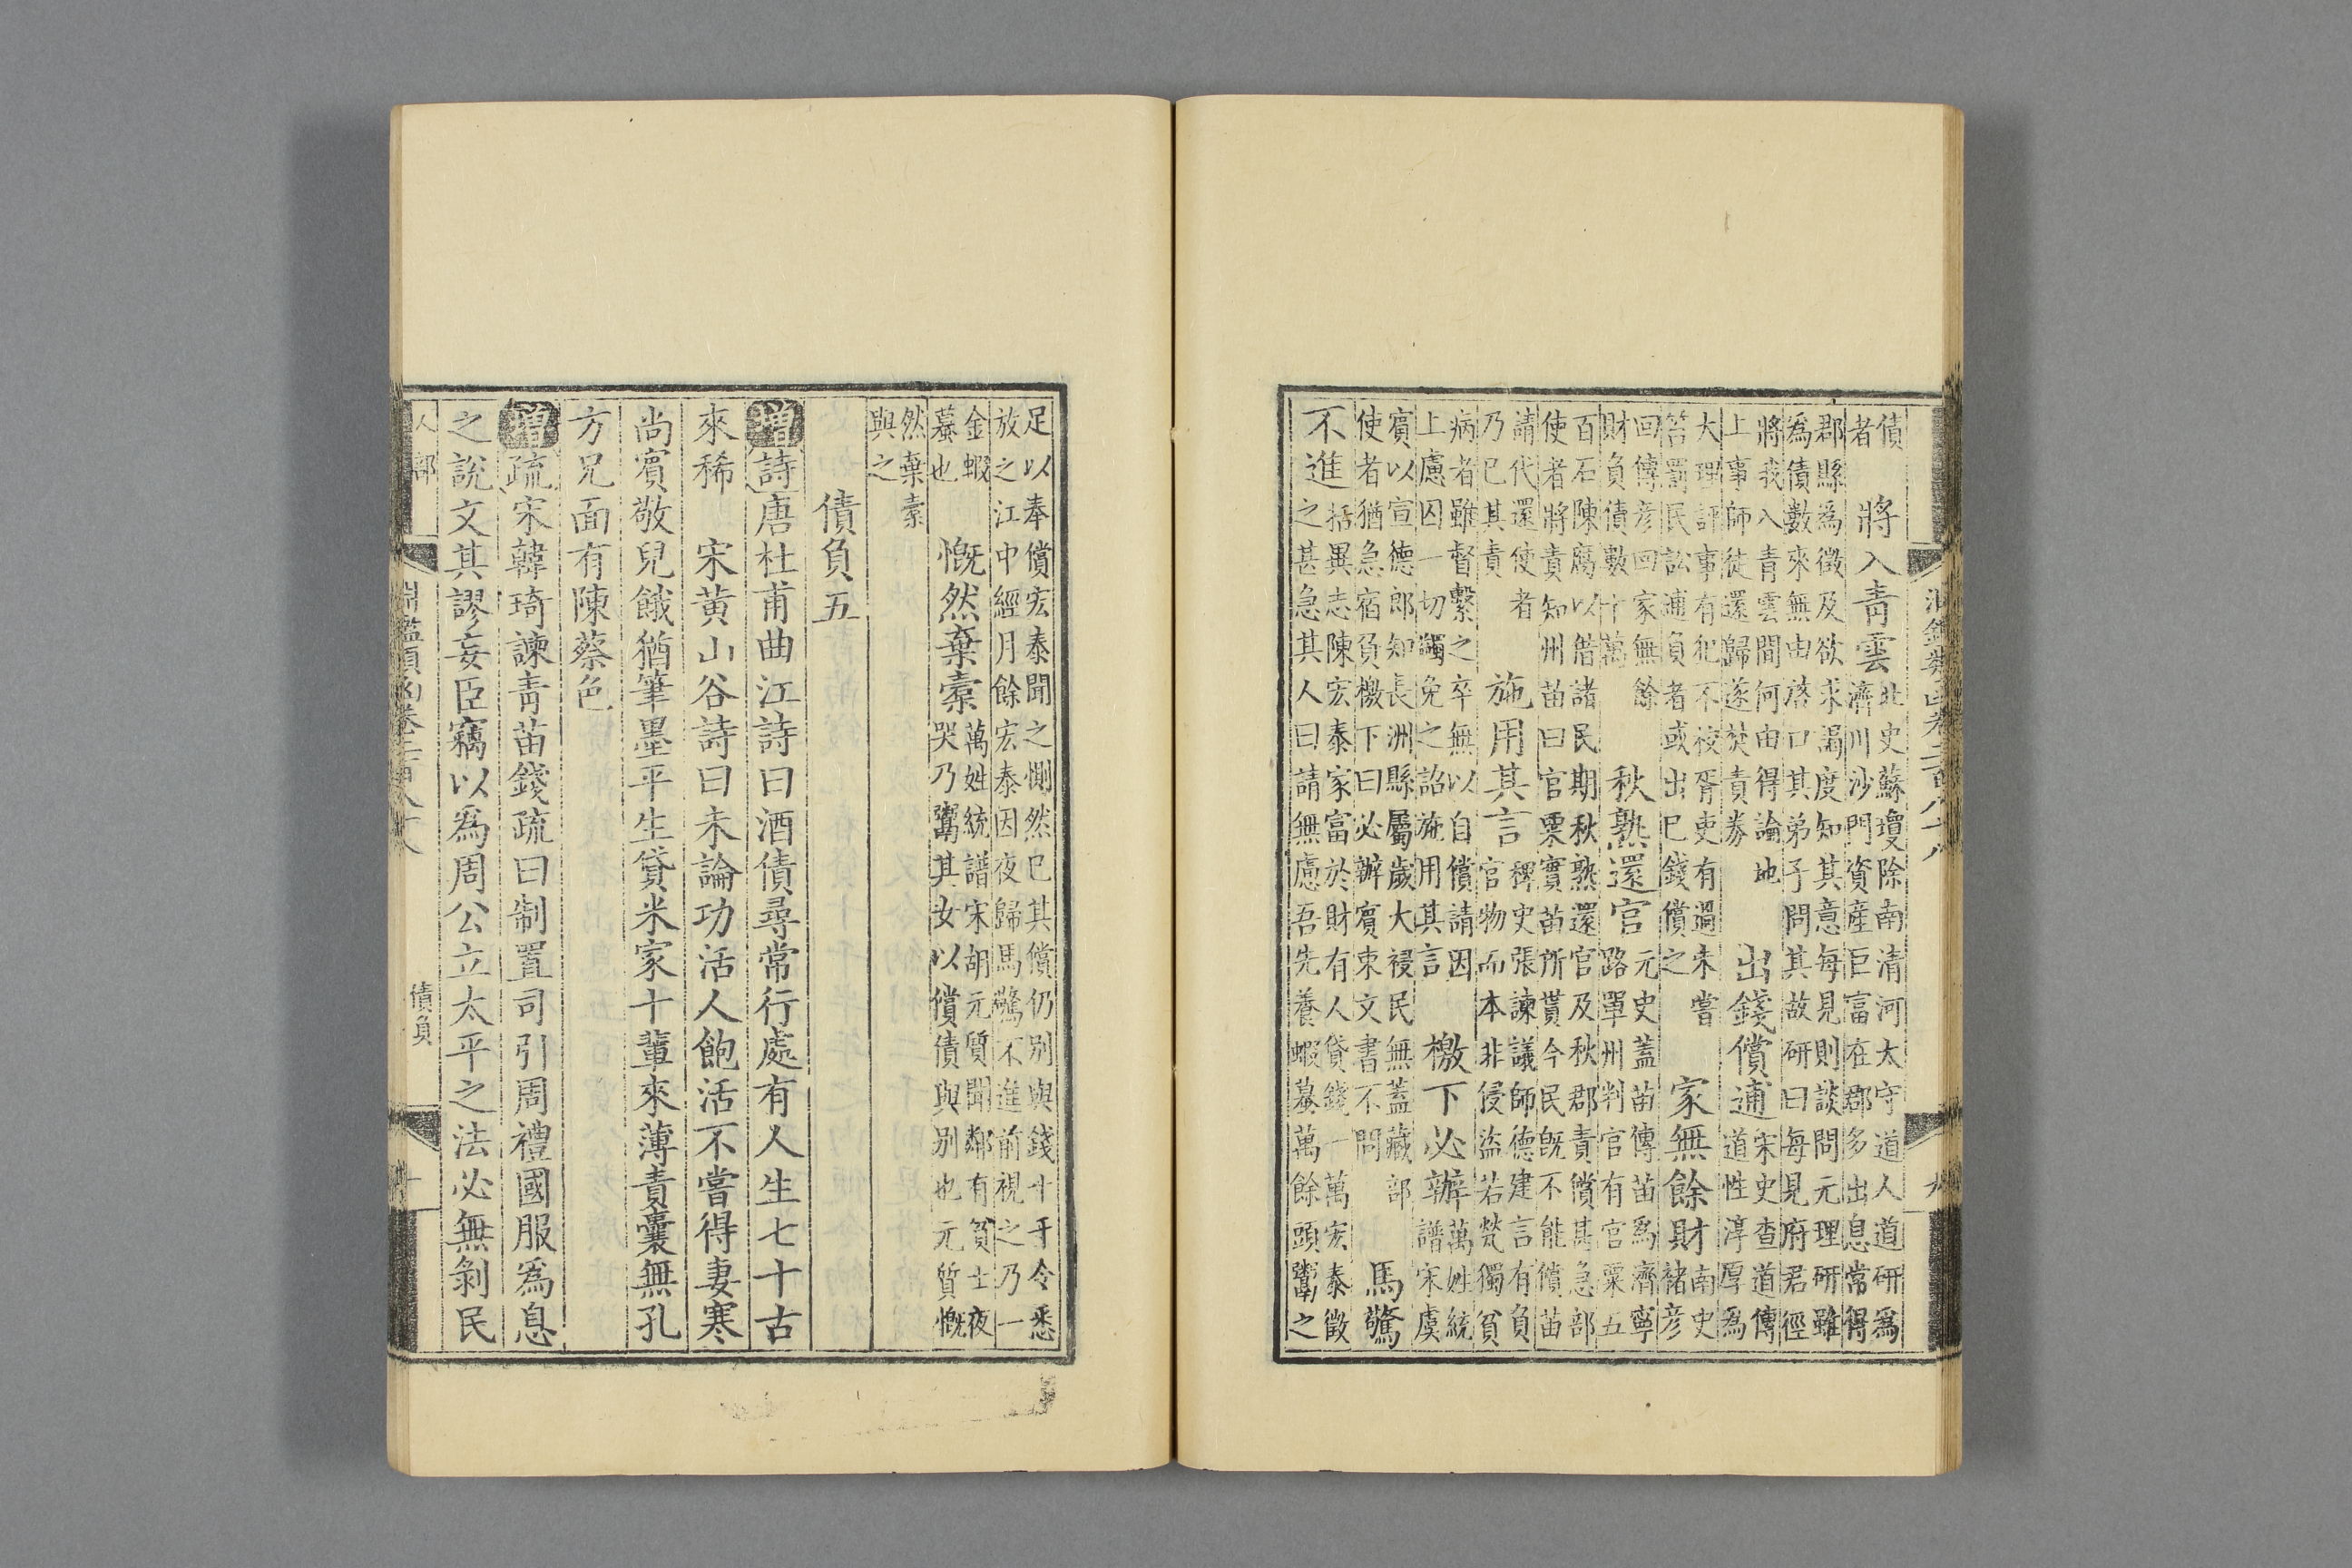 債
者
將入青雲
北史蘇瓊除南清河太守道人道研爲
濟川沙門資產巨富在郡多出息常得
郡縣爲徵及欲求謁度知其意每見則談問元理研雖
爲債數來無由啓口其弟子問其故研曰每見府君徑
將我入青雲間何由得論地
上事師徒還歸遂焚責券
出錢償逋
宋史查道傳
道性淳厚爲
大理評事有犯不校胥吏有過未嘗
笞罰民訟逋負者或出巳錢償之
家無餘財
南史
褚彦
回傳彦回家無餘
財負債數十萬
秋熟還官
元史蓋苗傳苗爲濟寧
路單州判官有官粟五
百石陳腐以借諸民期秋熟還官及秋郡責償甚急部
使者將責知州苗曰官粟實苗所貰今民旣不能償苗
請代還使者
乃巳其責
施用其言
稗史張諫議師德建言有負
官物而本非侵盜若煢獨貧
病者雖督繫之卒無以自償請因
上慮囚一切蠲免之詔施用其言
檄下必辦
萬姓統
譜宋虞
賓以宣德郎知長洲縣屬歲大祲民無蓋藏部
使者猶急宿負檄下曰必辦賓束文書不問
馬驚
不進
括異志陳宏泰家富於財有人貸錢一萬宏泰徵
之甚急其人曰請無慮吾先養蝦蟇萬餘頭鬻之
淵鑑類函卷二百八十八
九
足以奉償宏泰聞之惻然巳其償仍別與錢十千令悉
放之江中經月餘宏泰因夜歸馬驚不進前視之乃一
金蝦
蟇也
慨然棄橐
萬姓統譜宋胡元質聞鄰有貧士夜
哭乃鬻其女以償債與別也元質慨
然棄橐
與之
債負五
增詩唐杜甫曲江詩曰酒債尋常行處有人生七十古
來稀　宋黄山谷詩曰未論功活人飽活不嘗得妻寒
尚賓敬兒餓猶筆墨平生貸米家十輩來薄責囊無孔
方兄面有陳蔡色
增疏宋韓琦諫青苗錢疏曰制置司引周禮國服爲息
之說文其謬妄臣竊以爲周公立太平之法必無剝民
人部
淵鑑類函卷二百八十八
債負
十